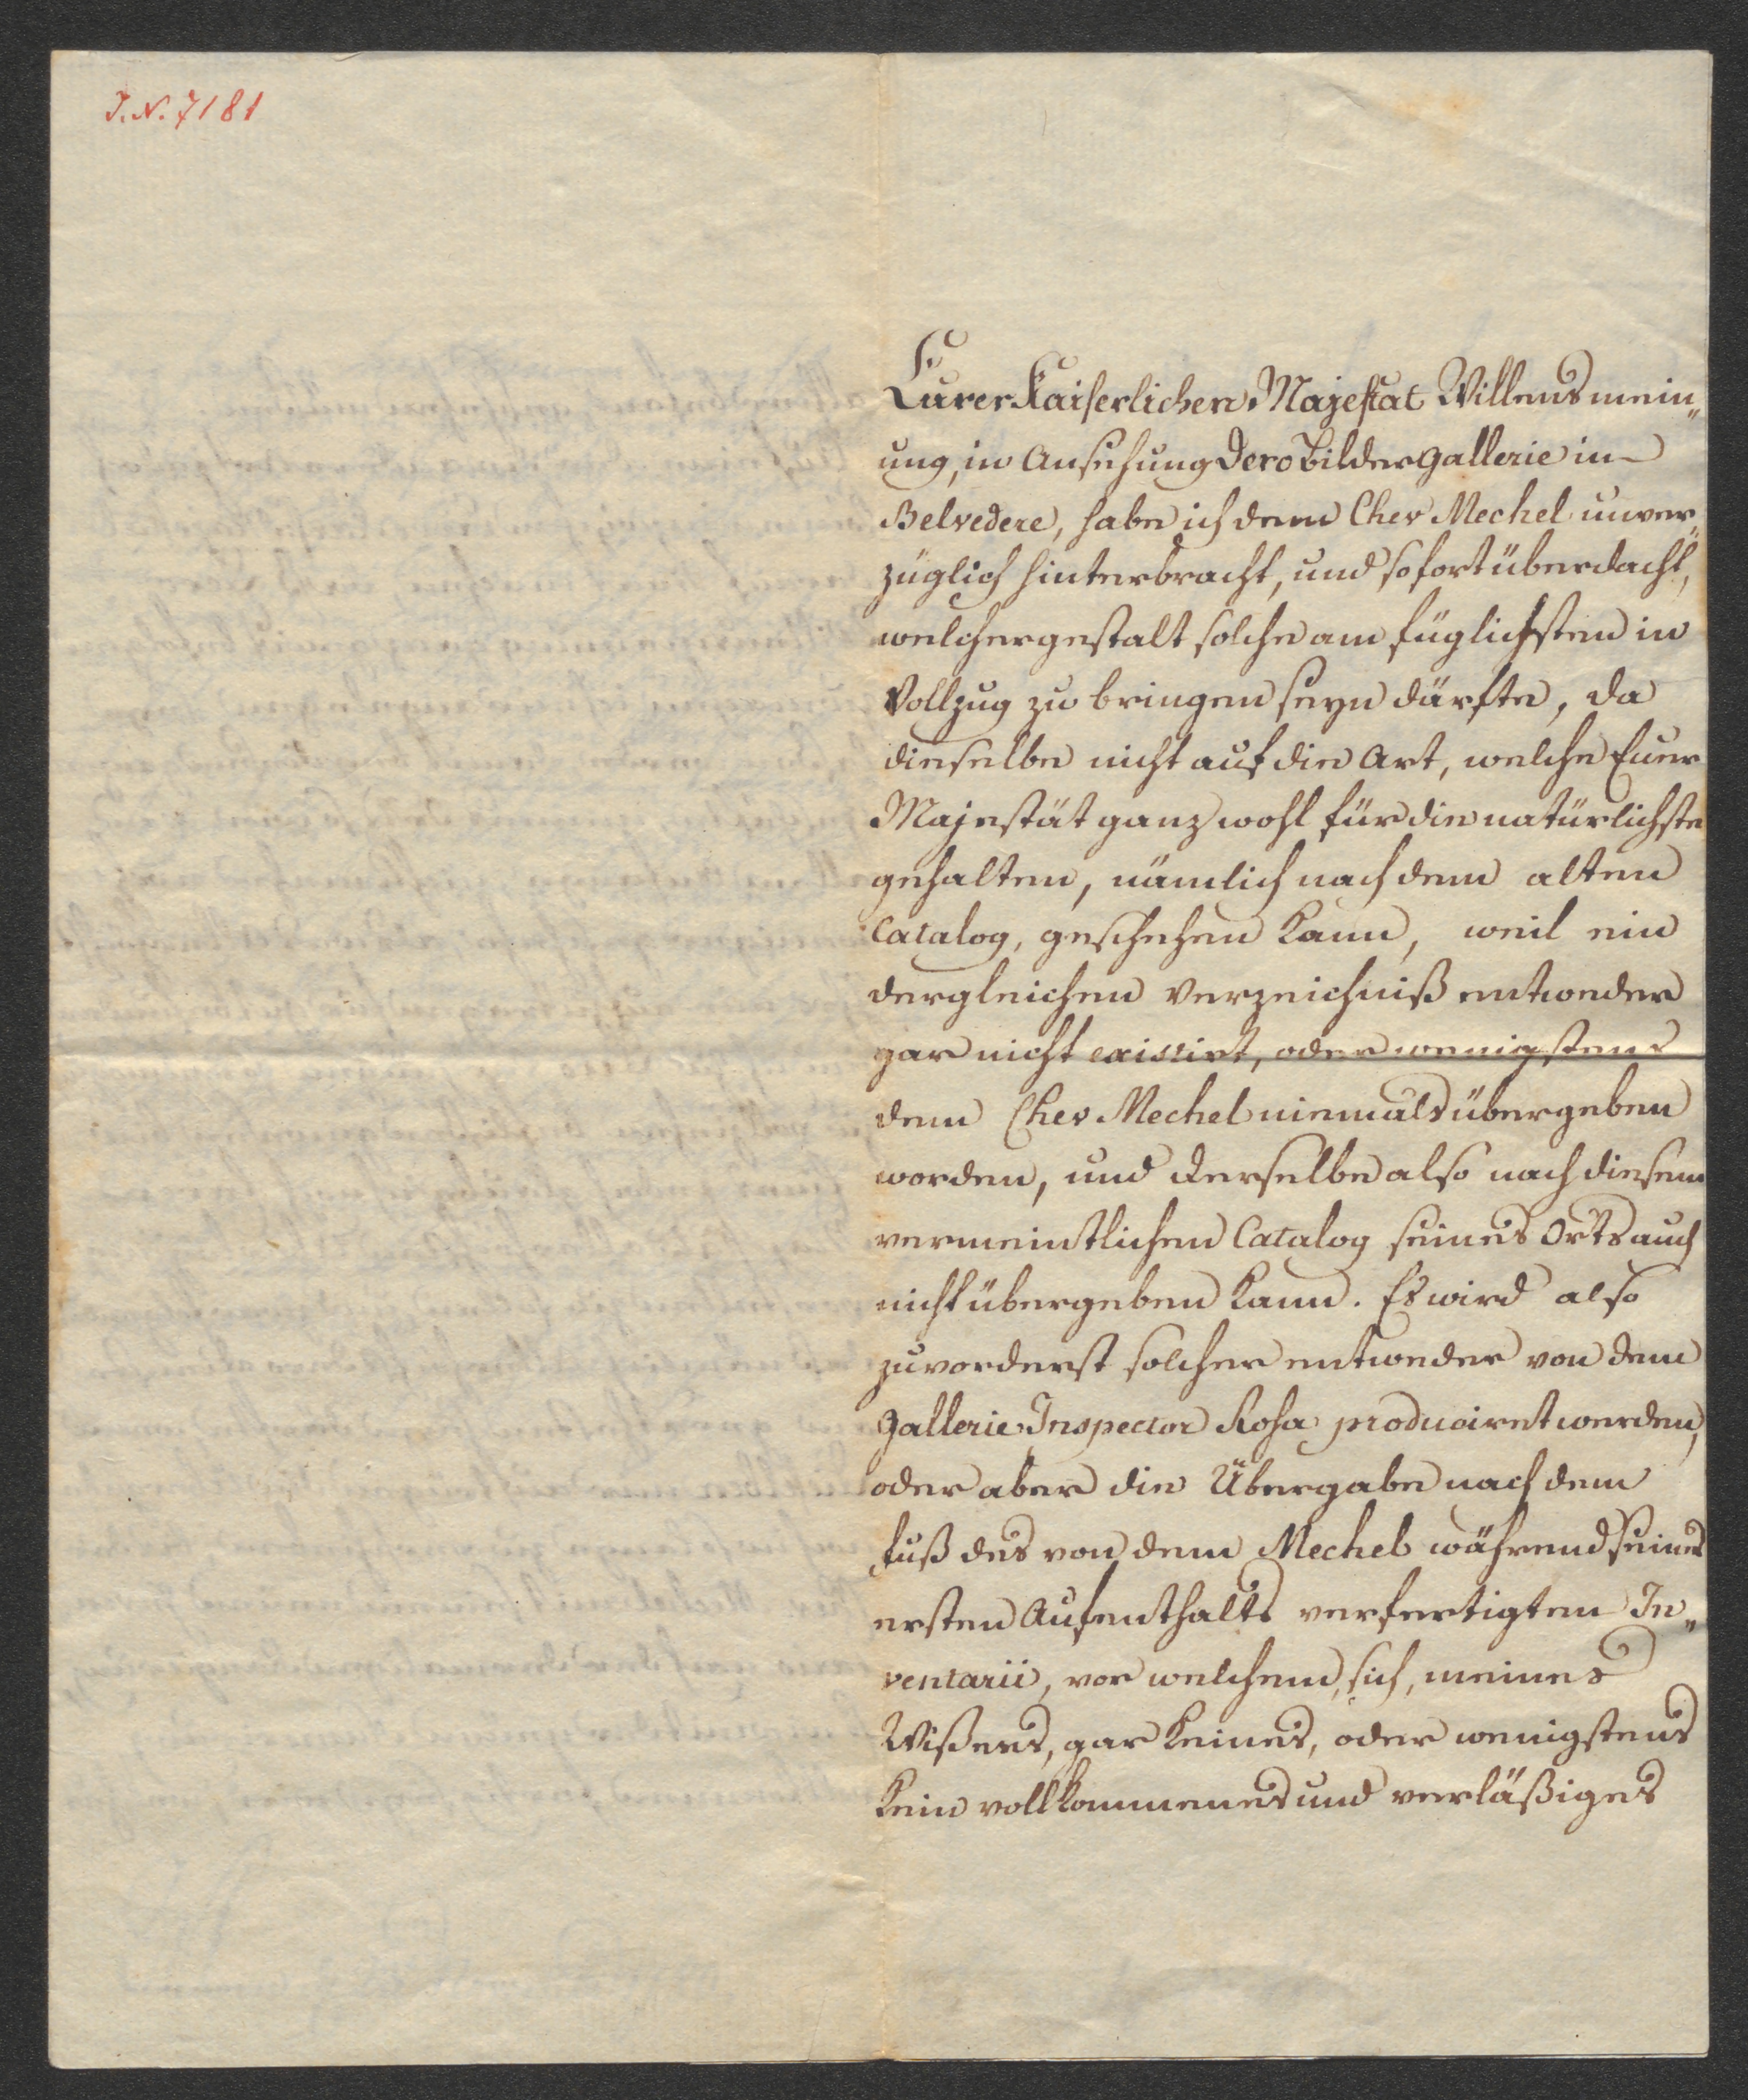 I.N. 7181
Eurer Kaiserlichen Majestat Willensmein„
ung, in Ansehung Dero Bilder Gallerie in
Belvedere, habe ich dem Chev Mechel unver„
züglich hinterbracht, und sofort überdacht,
welchergestalt solche am füglichsten in
Vollzug zu bringen seyn därfte, da
dieselbe nicht auf die Art, welche Euer
Majestät ganz wohl für die natürlichste
gehalten, nämlich nach dem alten
Catalog, geschehen kann, weil ein
dergleichen Verzeichniß entweder
gar nicht existirt, oder wenigstens
dem Chev Mechel niemals übergeben
worden, und derselbe also nach diesem
vermeintlichen Catalog seines Orts auch
nicht übergeben kann. Es wird also
zuvorderst solcher entweder von dem
Gallerie Inspector Rosa produciret werden,
oder aber die Übergabe nach dem
Fuß des von dem Mechel während seines
ersten Aufenthalts verfertigten In„
ventarii, vor welchem, sich, meines
Wißens, gar keines, oder wenigstens
kein vollkommenes und verläßiges